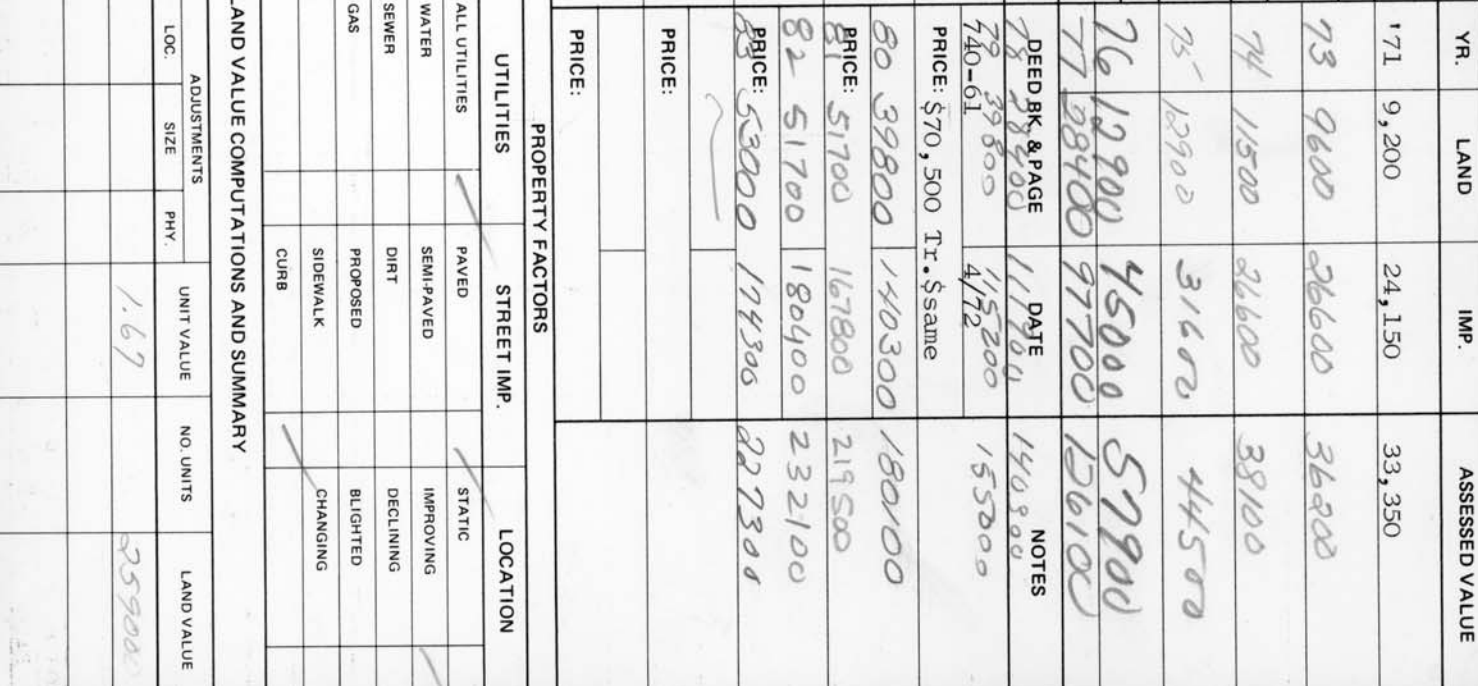 YR. LAND IMP. ASSESSED VALUE
'71 9,200 24,150 33,350
73 9600 26600 36200
74 11500 26600 38100
75 12900 31600 44500
76 12900 45000 57900
77 28400 97700 126100
DEED BK. & PAGE DATE NOTES
78 28400 140300
79 39800 115200 155000
740-61 4/72
PRICE: $70,500 Tr.$same
80 39800 140300 180100
81 51700 167800 219500
PRICE:
82 51700 180400 232100
83 53000 174300 227300
PRICE:
PRICE:
PRICE:
PROPERTY FACTORS
UTILITIES STREET IMP. LOCATION
ALL UTILITIES PAVED STATIC
WATER SEMI-PAVED IMPROVING
SEWER DIRT DECLINING
GAS PROPOSED BLIGHTED
SIDEWALK CHANGING
CURB
LAND VALUE COMPUTATIONS AND SUMMARY
ADJUSTMENTS UNIT VALUE NO. UNITS LAND VALUE
LOC. SIZE PHY.
1.67 259000